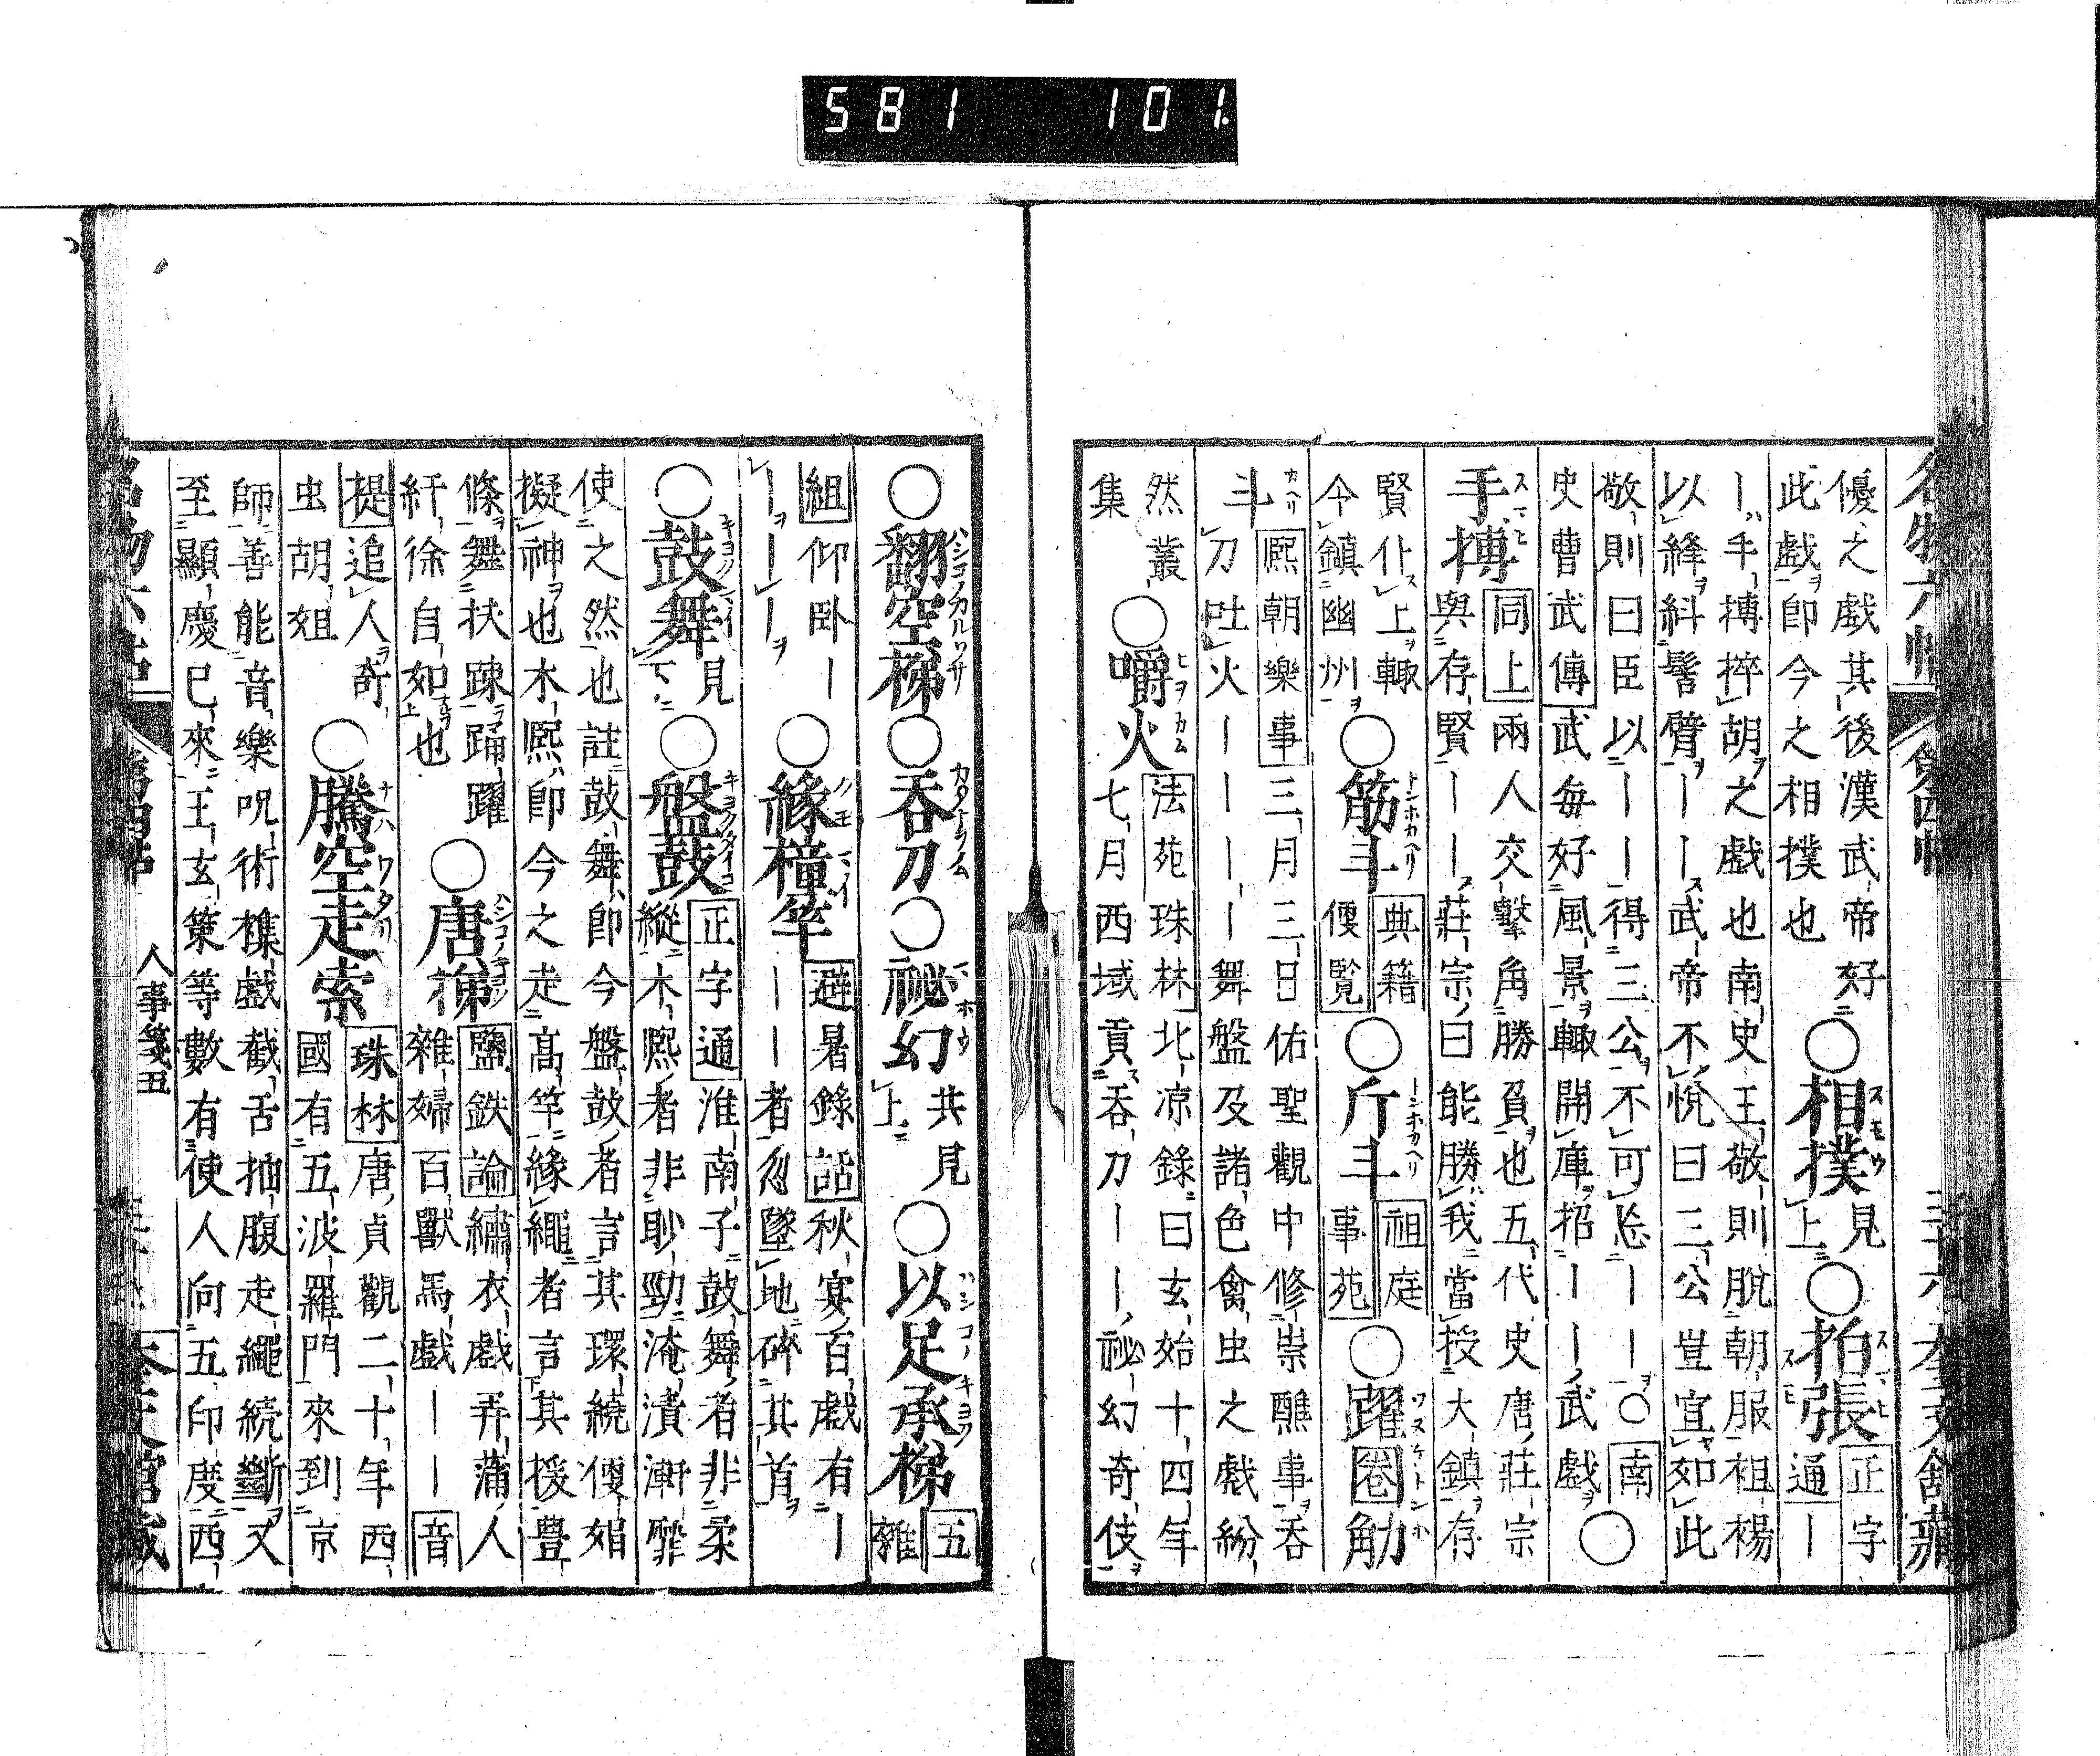 581 101.
優之戲其後漢武帝好
此戲卽今之相撲也
○相撲スモウ見上
○拍張スマヒ 正字通｜
｜手搏捽胡之戲也南史王敬則脫朝服袒裼
以絳糾髻臂｜｜武帝不悅曰三公豈宜如此
敬則曰臣以｜｜得三公不可忘｜｜○南
史曹武傳武毎好風景輙開庫招｜｜武戲
○手搏スマヒ 同上兩人交擊角勝負也五代史唐莊宗
與存賢｜｜莊宗曰能勝我當授大鎮存
賢仆上輙
今鎮幽州
○筋斗トンホカヘリ 典籍便覧
○斤斗 祖庭事苑
○躍圈觔
斗カヘリ 熈朝樂事三月三日佑聖觀中修崇醮事吞
刀吐火｜｜｜｜舞盤及諸色禽虫之戲紛
然叢
集
○嚼火ヒヲカム 法苑珠林北凉錄曰玄始十四年
七月西域貢吞刀｜｜祕幻奇伎
名物六帖 第四帖
○翻空梯ハシコノカルワサ
○吞刀カタナノム
○祕幻 共見上
○以足承梯 五雜
組仰卧｜
｜｜｜
○緣橦竿 避暑錄話秋宴百戲有｜
｜｜者忽墜地碎其首
○鼓舞 見下
○盤鼓キヨクタイコ 正字通淮南子鼓舞者非柔
縱木熈者非眇勁淹漬漸靡
使之然也註鼓舞卽今盤鼓者言其環繞便娟
擬神也木熈卽今之走高竿緣繩者言其援豊
條舞扶踈踊躍
紆徐自如也
○唐梯 鹽鉄論繡衣戲弄蒲人
雜婦百獸馬戲｜｜音
提追人奇
虫胡妲
○騰空走索ナハワタリ 珠林唐貞觀二十年西
國有五波羅門來到京
師善能音樂呪術橾戲截舌抽腹走繩続斷又
至顯慶已來王玄策等數有使人向五印度西
第四帖 人事箋五